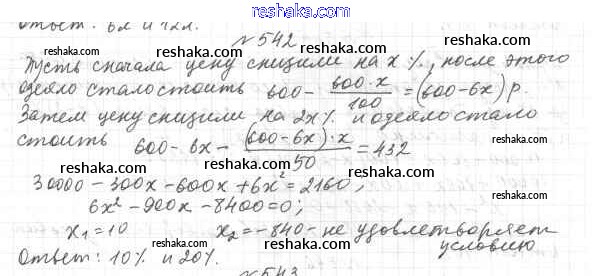 reshaka.com
Ответ: 6л и 12л.
№ 542
reshaka.com reshaka.com
Пусть сначала цену снизили на x %, после этого
одеяло стало стоить 600 - 600·x/100 = (600-6x) р.
reshaka.com reshaka.com
Затем цену снизили на 2x% и одеяло стало
стоить 600-6x - (600-6x)·x/50 = 432
reshaka.com reshaka.com
30000 - 300x - 600x + 6x² = 2160;
6x² - 900x - 8400 = 0;
reshaka.com reshaka.com
x₁ = 10 x₂ = -840 - не удовлетворяет
условию
reshaka.com reshaka.com
Ответ: 10% и 20%.
№ 543